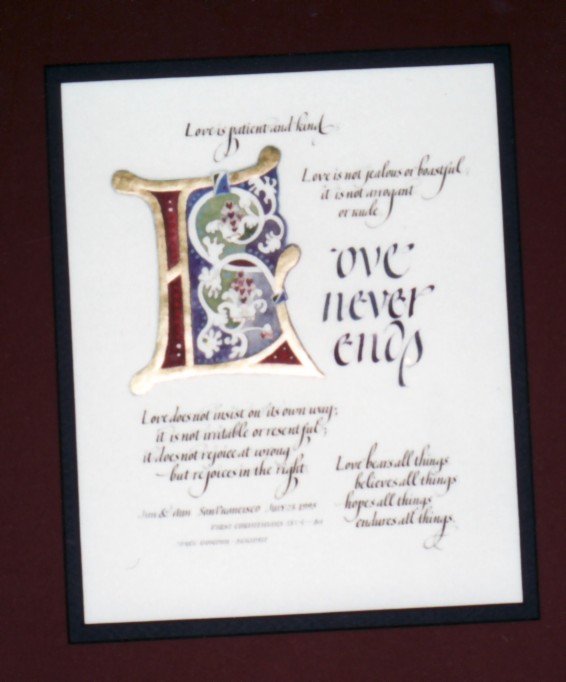 Love is patient and kind
Love is not jealous or boastful;
it is not arrogant
or rude.
Love
never
ends
Love does not insist on its own way;
it is not irritable or resentful;
it does not rejoice at wrong
but rejoices in the right
Love bears all things
believes all things
hopes all things
endures all things.
& Ann San Francisco July 1995
First Corinthians